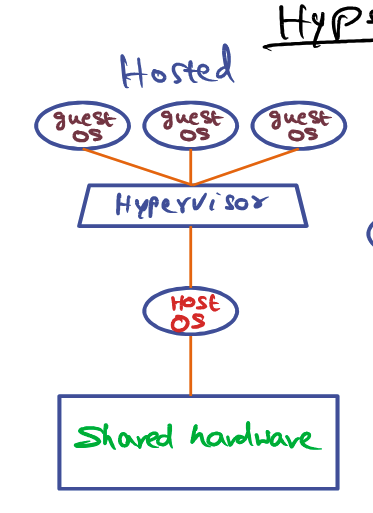 Hosted
guest guest guest
OS OS OS
Hypervisor
Host
OS
Shared hardware